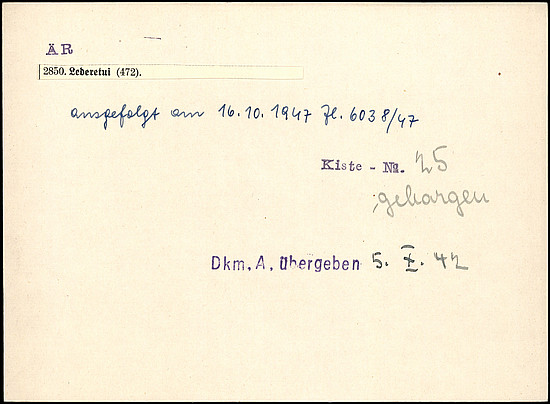 ÄR
2850. Lederetui (472).
ausgefolgt am 16.10.1947 Zl. 6038/47
Kiste - Nr. 25
geborgen
Dkm. A. übergeben 5. X. 42